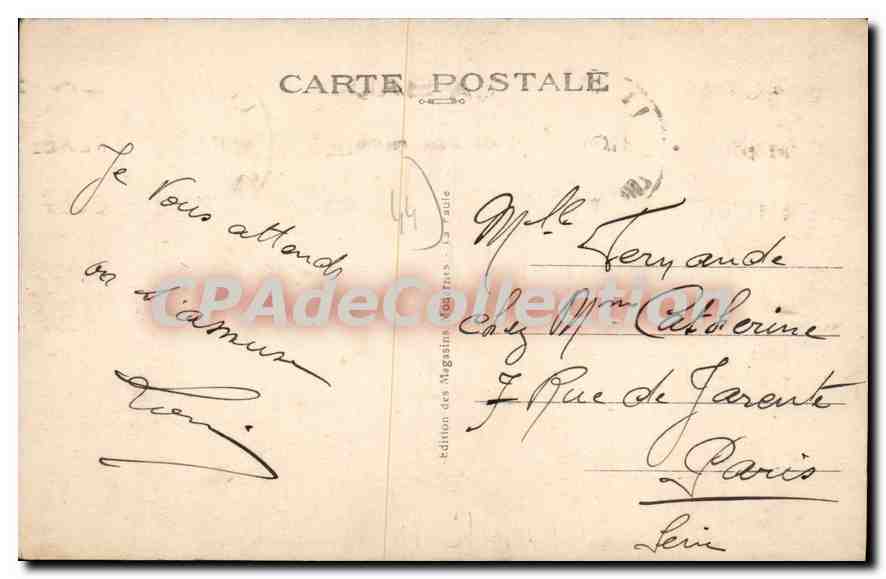 CARTE POSTALE
Je vous attends
on s'amuse
44
Edition des Magasins Modernes - La Baule
Mlle Fernande
chez Mme Catherine
7 Rue de Jarente
Paris
Seine
CPAdeCollection